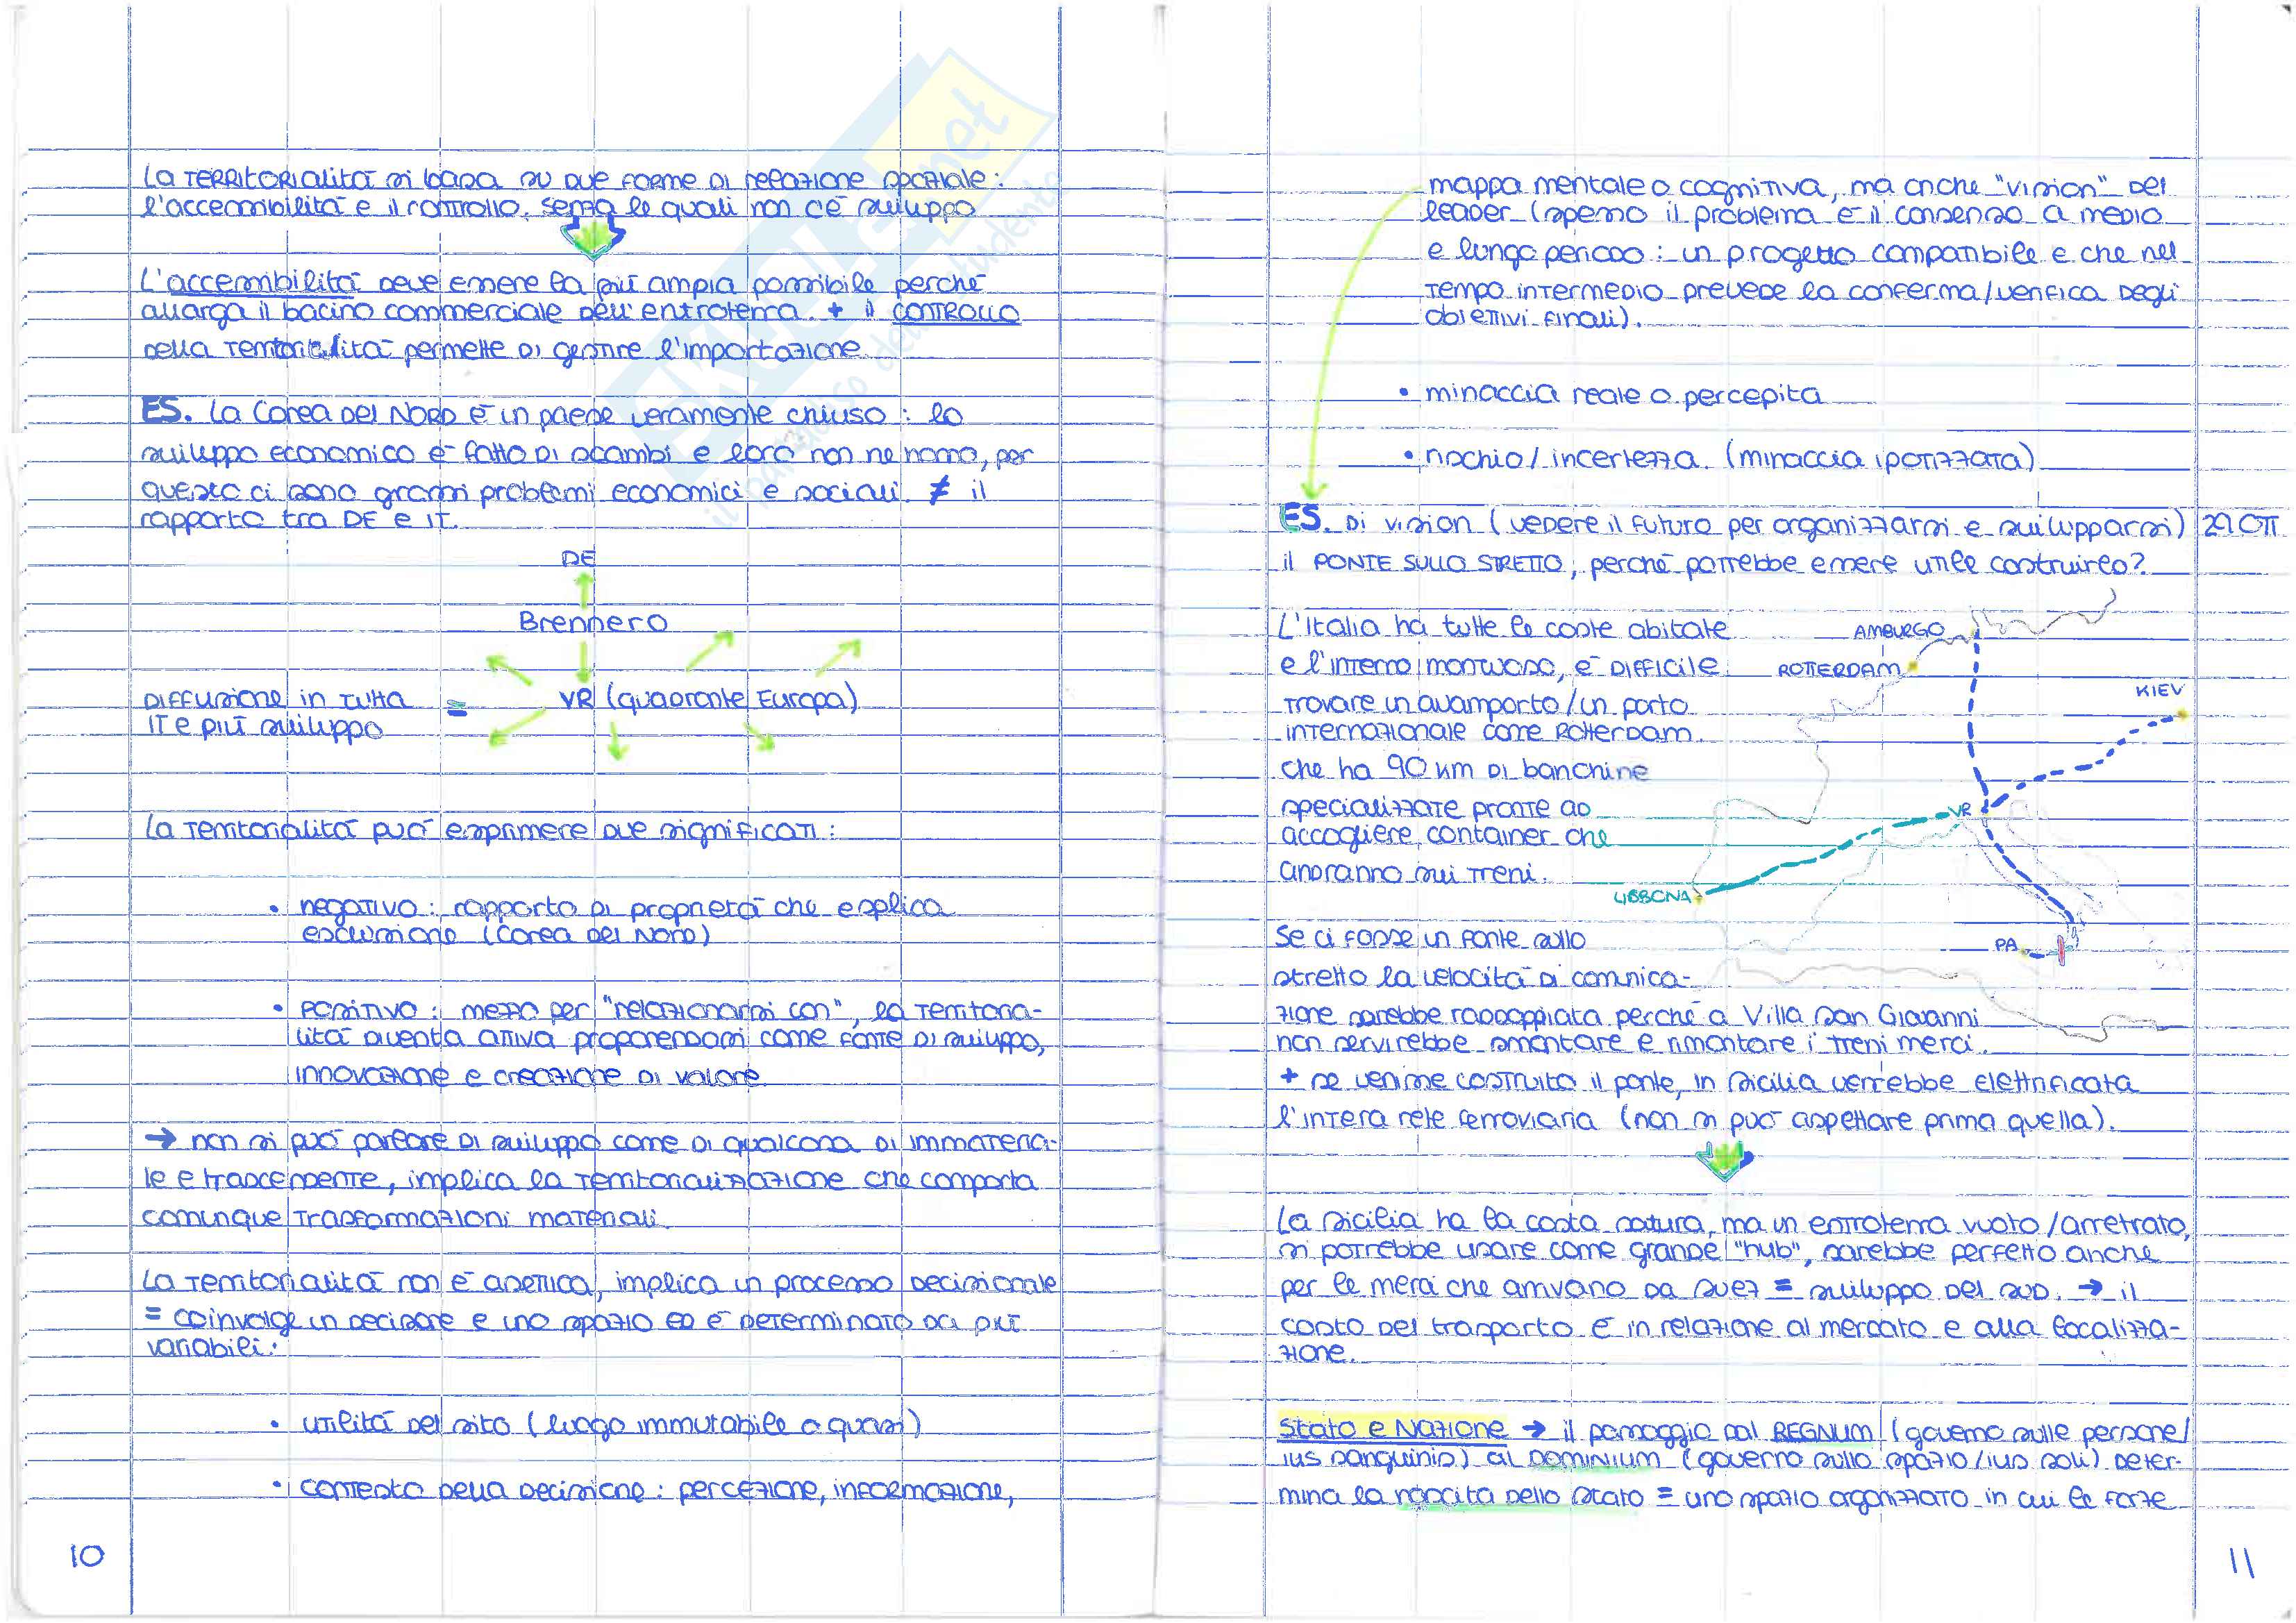 La TERRITORIALITÀ si basa su due forme di relazione spaziale:
l'accessibilità e il controllo, senza le quali non c'è sviluppo
L'accessibilità deve essere la più ampia possibile perché
allarga il bacino commerciale dell'entroterra. + il CONTROLLO
della territorialità permette di gestire l'importazione.
ES. La Corea del Nord è un paese veramente chiuso: lo
sviluppo economico è fatto di scambi e loro non ne hanno, per
questo ci sono grandi problemi economici e sociali. ≠ il
rapporto tra DE e IT.
DE
Brennero
Diffusione in tutta = VR (quadrante Europa)
IT e più sviluppo
La territorialità può esprimere due significati:
• negativo: rapporto di proprietà che esplica
esclusione (Corea del Nord)
• positivo: mezzo per "relazionarsi con", la territoria-
lità diventa attiva proponendosi come fonte di sviluppo,
innovazione e creazione di valore
→ non si può parlare di sviluppo come di qualcosa di immateria-
le e trascendente, implica la territorializzazione che comporta
comunque trasformazioni materiali.
La territorialità non è asettica, implica un processo decisionale
= coinvolge un decisore e uno spazio ed è determinato da più
variabili:
• utilità del sito (luogo immutabile o quasi)
• contesto della decisione: percezione, informazione,
10
mappa mentale o cognitiva, ma anche "vision" del
leader (spesso il problema è il consenso a medio
e lungo periodo: un progetto compatibile e che nel
tempo intermedio prevede la conferma/verifica degli
obiettivi finali).
• minaccia reale o percepita
• rischio/incertezza (minaccia ipotizzata)
ES. di vision (vedere il futuro per organizzarsi e svilupparsi) 29 OTT
il PONTE SULLO STRETTO, perché potrebbe essere utile costruirlo?
L'Italia ha tutte le coste abitate
e l'interno montuoso, è difficile
trovare un avamporto/un porto
internazionale come Rotterdam
che ha 90 km di banchine
specializzate pronte ad
accogliere container che
andranno sui treni.
AMBURGO
ROTTERDAM
KIEV
VR
LISBONA
PA
Se ci fosse un ponte sullo
stretto la velocità di comunica-
zione sarebbe raddoppiata perché a Villa San Giovanni
non servirebbe smontare e rimontare i treni merci.
+ se venisse costruito il ponte, in Sicilia verrebbe elettrificata
l'intera rete ferroviaria (non si può aspettare prima quella).
La Sicilia ha la costa satura, ma un entroterra vuoto/arretrato,
si potrebbe usare come grande "hub", sarebbe perfetto anche
per le merci che arrivano da Suez = sviluppo del sud. → il
costo del trasporto è in relazione al mercato e alla localizza-
zione.
Stato e Nazione → il passaggio dal REGNUM (governo sulle persone/
ius sanguinis) al DOMINIUM (governo sullo spazio/ius soli) deter-
mina la nascita dello Stato = uno spazio organizzato in cui le forze
11